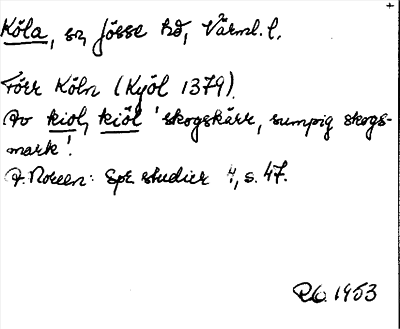 Köla, sn, Jösse hd, Värml. l.
Förr Köln (Kyöl 1379).
Av kiol, kiöl 'skogskärr, sumpig skogs-
mark'.
A. Noreen: Spr. studier 4, s. 47.
1953